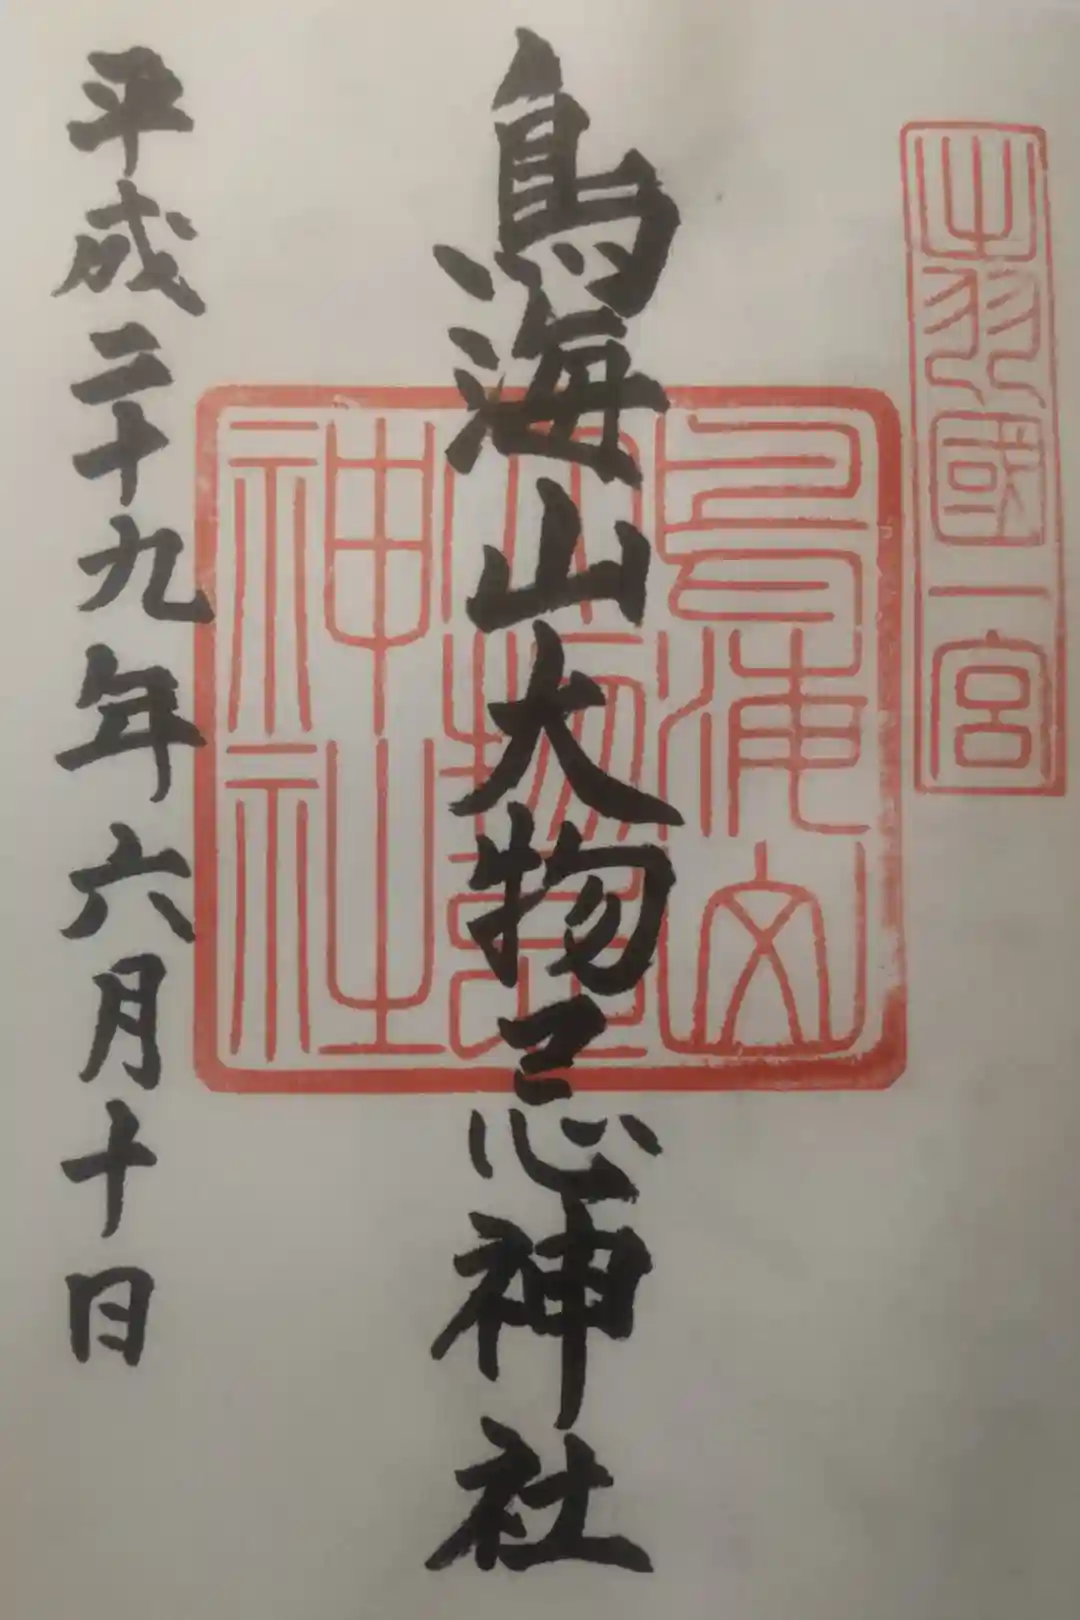 出羽國一宮
鳥海山大物忌神社
鳥海山
大物忌
神社
平成二十九年六月十日